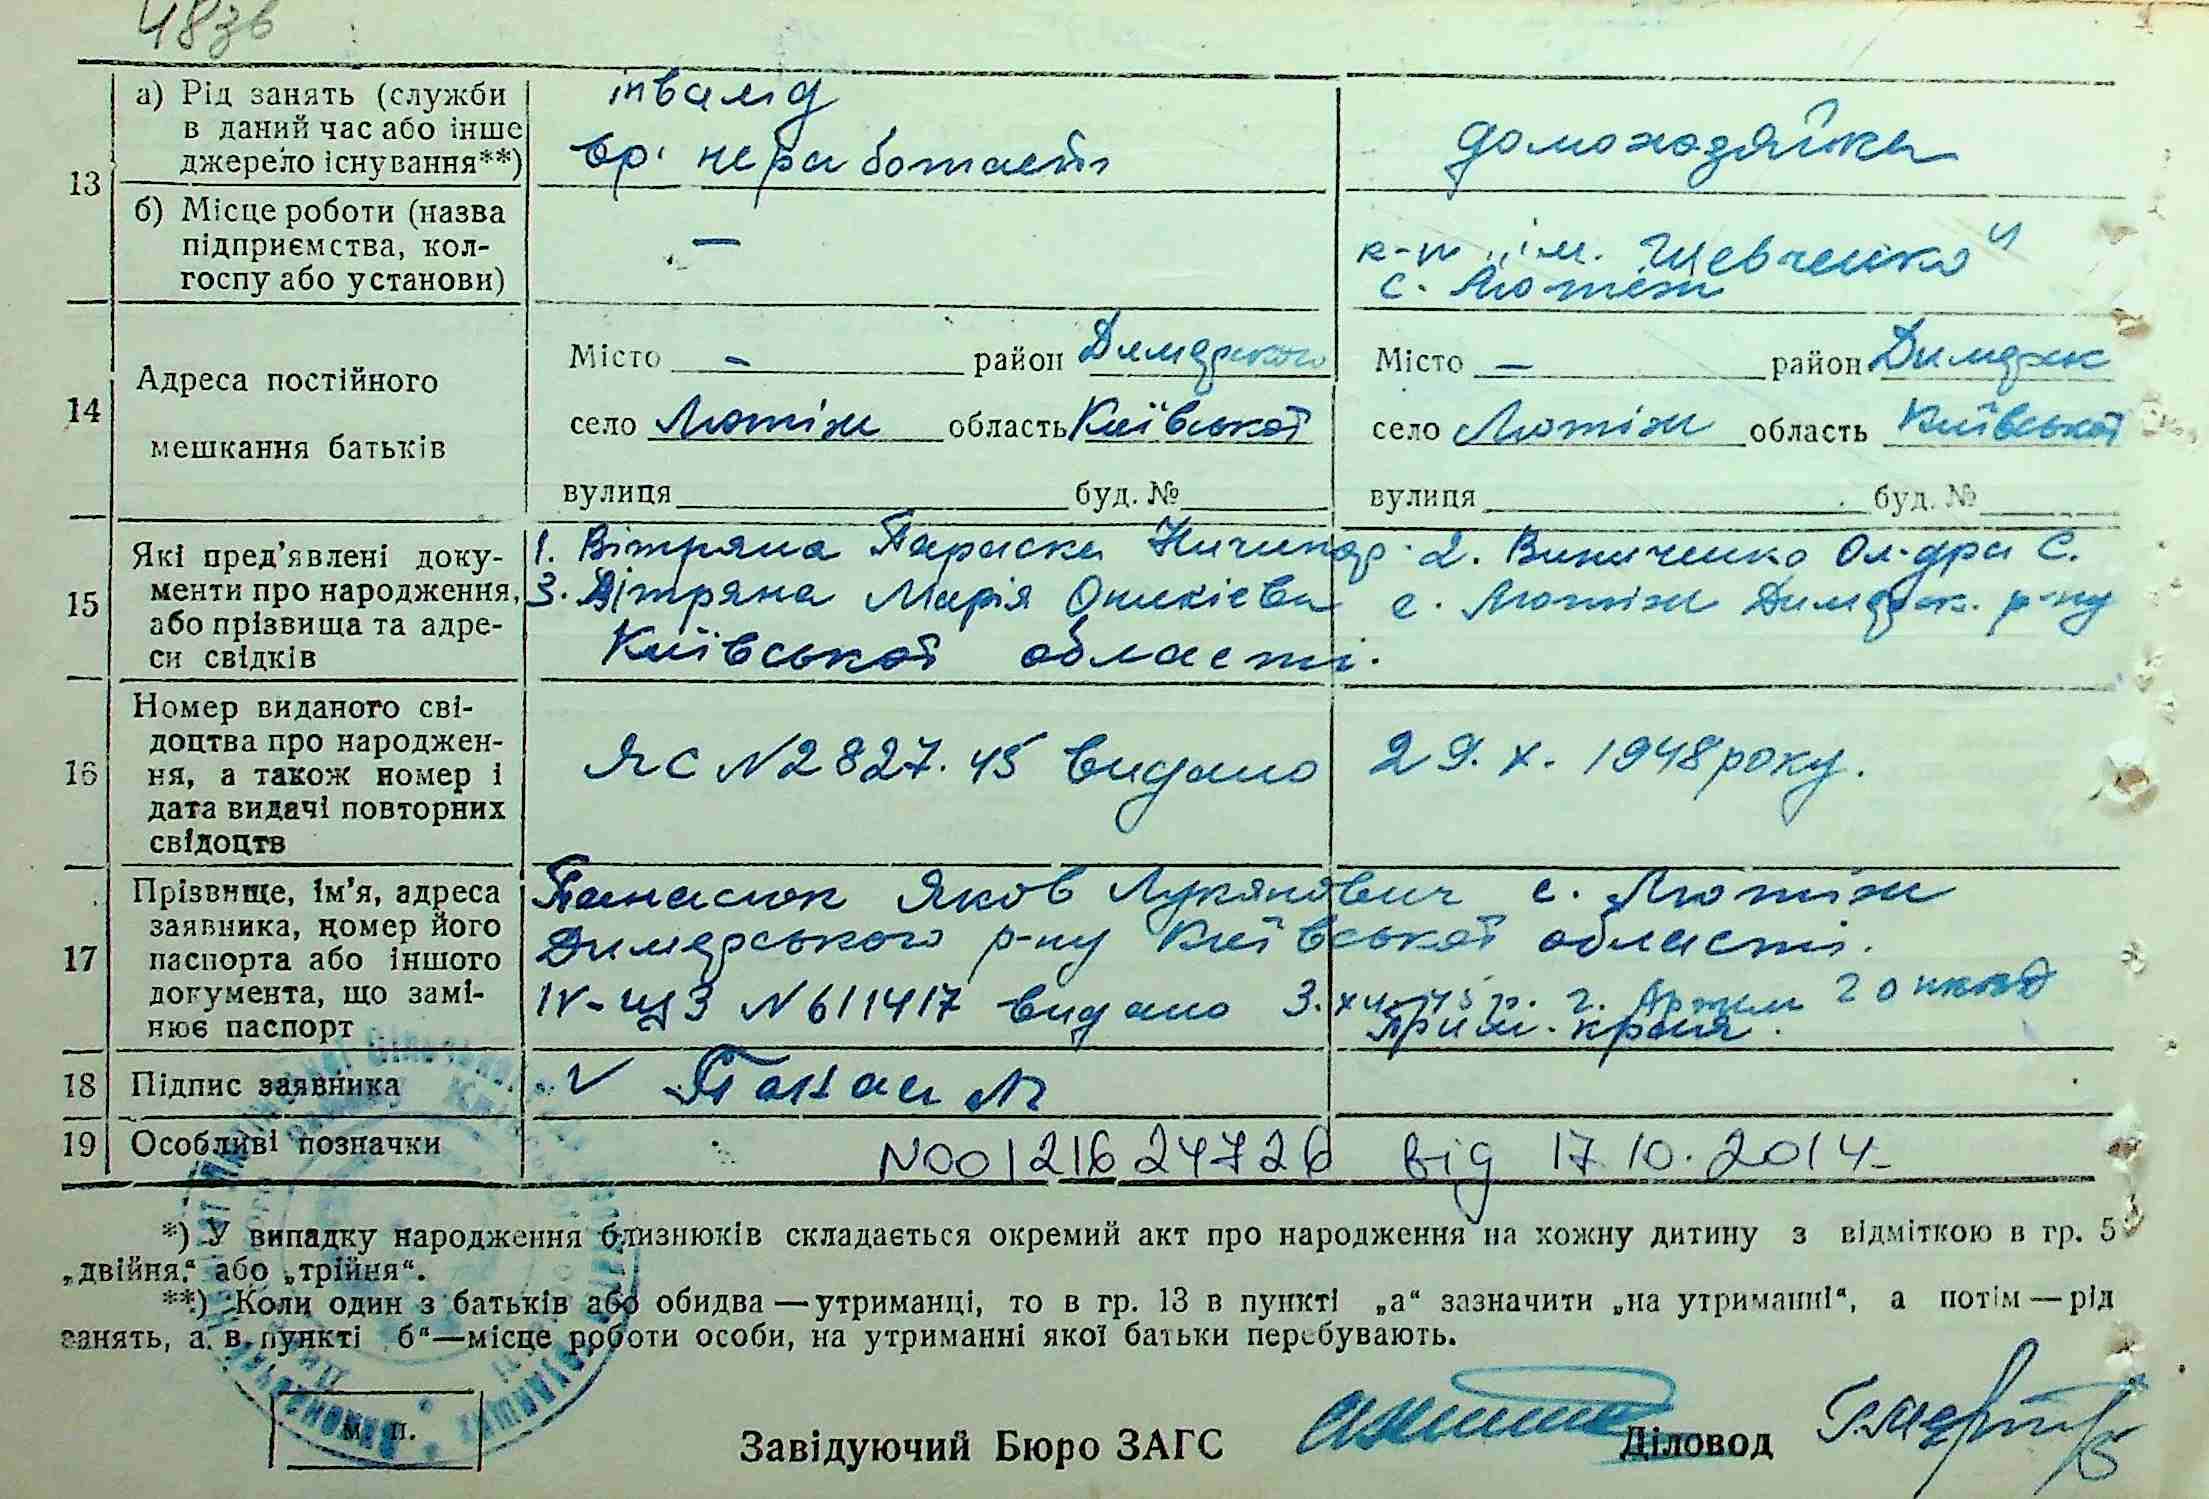 48зв
а) Рід занять (служби
в даний час або інше
джерело існування**)
інвалід
вр. не работаєть
домохазяйка
13
б) Місце роботи (назва
підприємства, кол-
госпу або установи)
—
к-п „ім. Шевченко"
с. Лютіж
14
Адреса постійного
мешкання батьків
Місто — район Димерського
село Лютіж область Київської
вулиця буд. №
Місто — район Димерськ
село Лютіж область Київської
вулиця буд. №
15
Які пред'явлені доку-
менти про народження,
або прізвища та адре-
си свідків
1. Вітряна Параска Ничипор. 2. Виниченко Ол-дра С.
3. Вітряна Марія Оникієвна с. Лютіж Димерськ. р-ну
Київської області.
16
Номер виданого сві-
доцтва про народжен-
ня, а також номер і
дата видачі повторних
свідоцтв
ЯС №2827.45 видано 29.X.1948 року.
17
Прізвище, ім'я, адреса
заявника, номер його
паспорта або іншого
документа, що замі-
нює паспорт
Панасюк Яков Лукянович с. Лютіж
Димерського р-ну Київської області.
N 611417 видано
Прим. края.
18
Підпис заявника
V Панасюк
19
Особливі позначки
N00121624726 від 17.10.2014
*) У випадку народження близнюків складається окремий акт про народження на кожну дитину з відміткою в гр. 5
„двійня“ або „трійня“.
**) Коли один з батьків або обидва — утриманці, то в гр. 13 в пункті „а“ зазначити „на утриманні“, а потім — рід
занять, а в пункті б“—місце роботи особи, на утриманні якої батьки перебувають.
м. п.
Завідуючий Бюро ЗАГС
Діловод